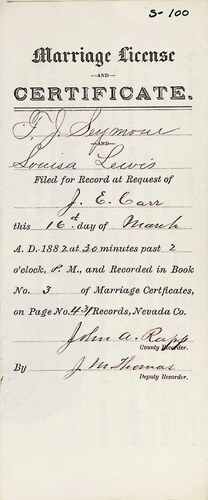 S-100
Marriage License
—AND—
CERTIFICATE.
F. J. Seymour
—AND—
Louisa Lewis
Filed for Record at Request of
J. E. Carr
this 16d day of March
A. D. 1882 at 30 minutes past 2
o'clock, P. M., and Recorded in Book
No. 3 of Marriage Certficates,
on Page No. 431 Records, Nevada Co.
John A. Rapp
County Recorder.
By J. M. Thomas
Deputy Recorder.